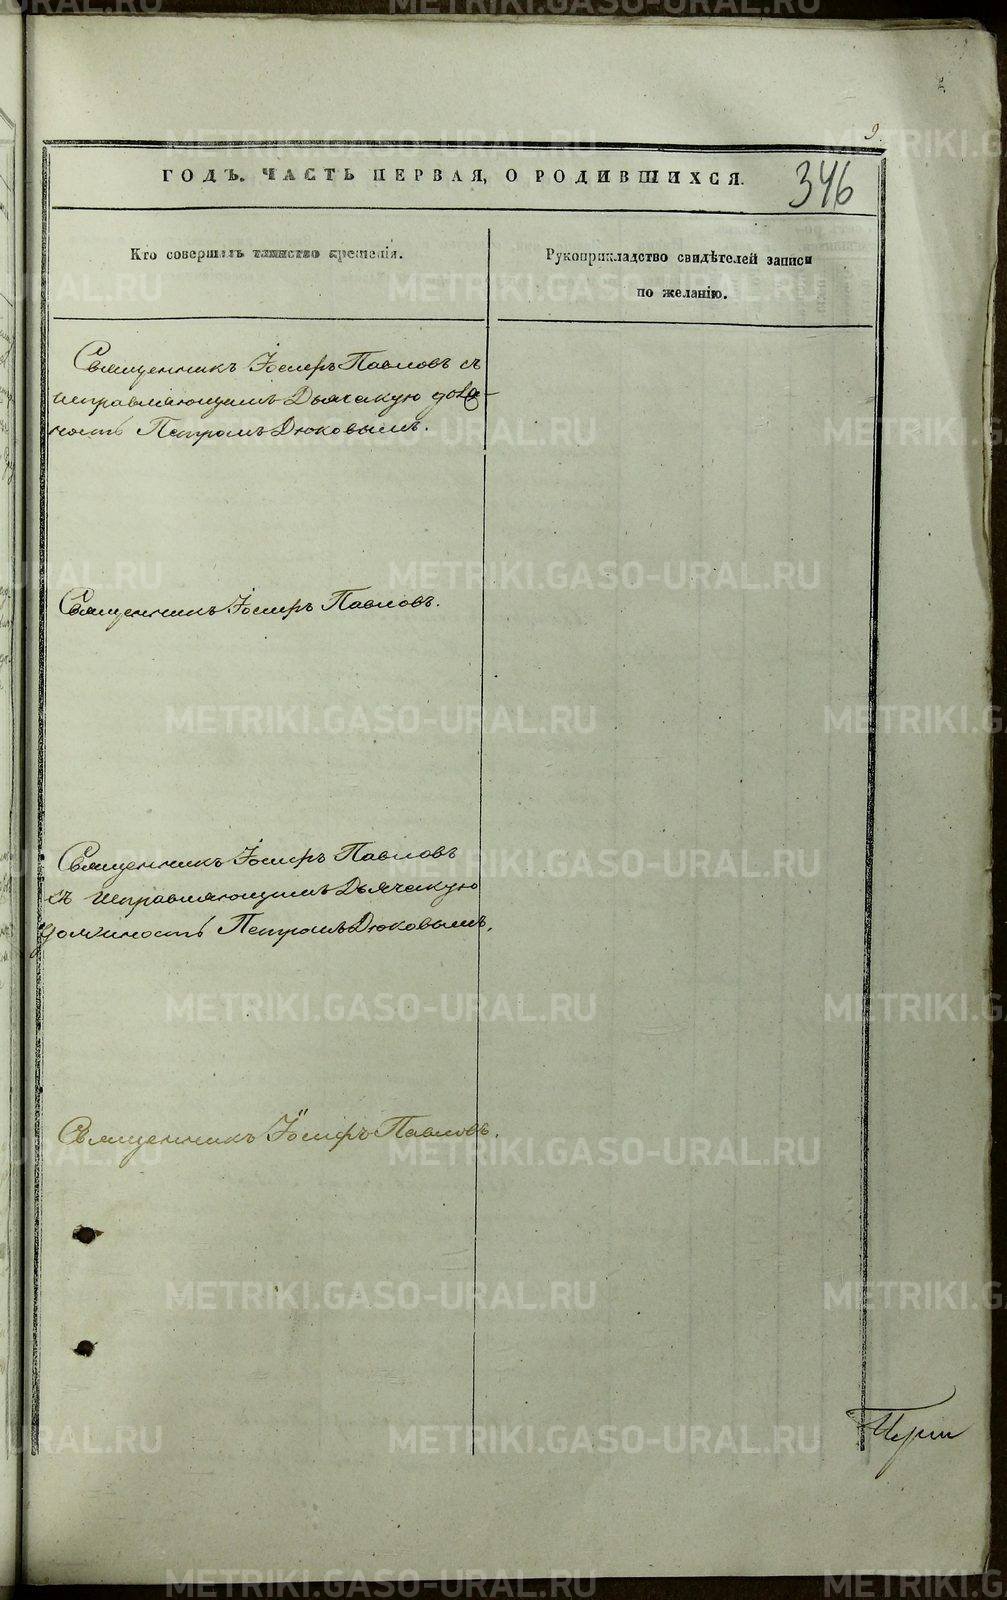 9.
ГОДЪ. ЧАСТЬ ПЕРВАЯ, О РОДИВШИХСЯ.
346
Кто совершилъ таинство крещенія.
Рукоприкладство свидѣтелей записи
по желанію.
Священникъ Іосифъ Павловъ съ
исправляющимъ Дьячскую дол-
ность Петромъ Дюковымъ.
Священникъ Іосифъ Павловъ.
Священникъ Іосифъ Павловъ
съ исправляющимъ Дьячскую
должность Петромъ Дюковымъ.
Священникъ Іосифъ Павловъ.
METRIKI.GASO-URAL.RU